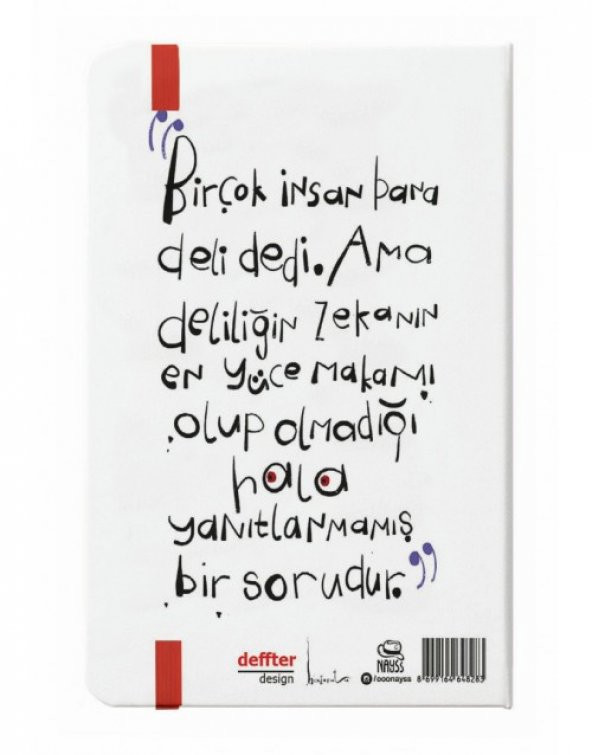 "Birçok insan bana
deli dedi. Ama
deliliğin zekanın
en yüce makamı
olup olmadığı
hala
yanıtlanmamış
bir sorudur."
deffter
design
NAYSS
/ooonayss
8 699164 648283